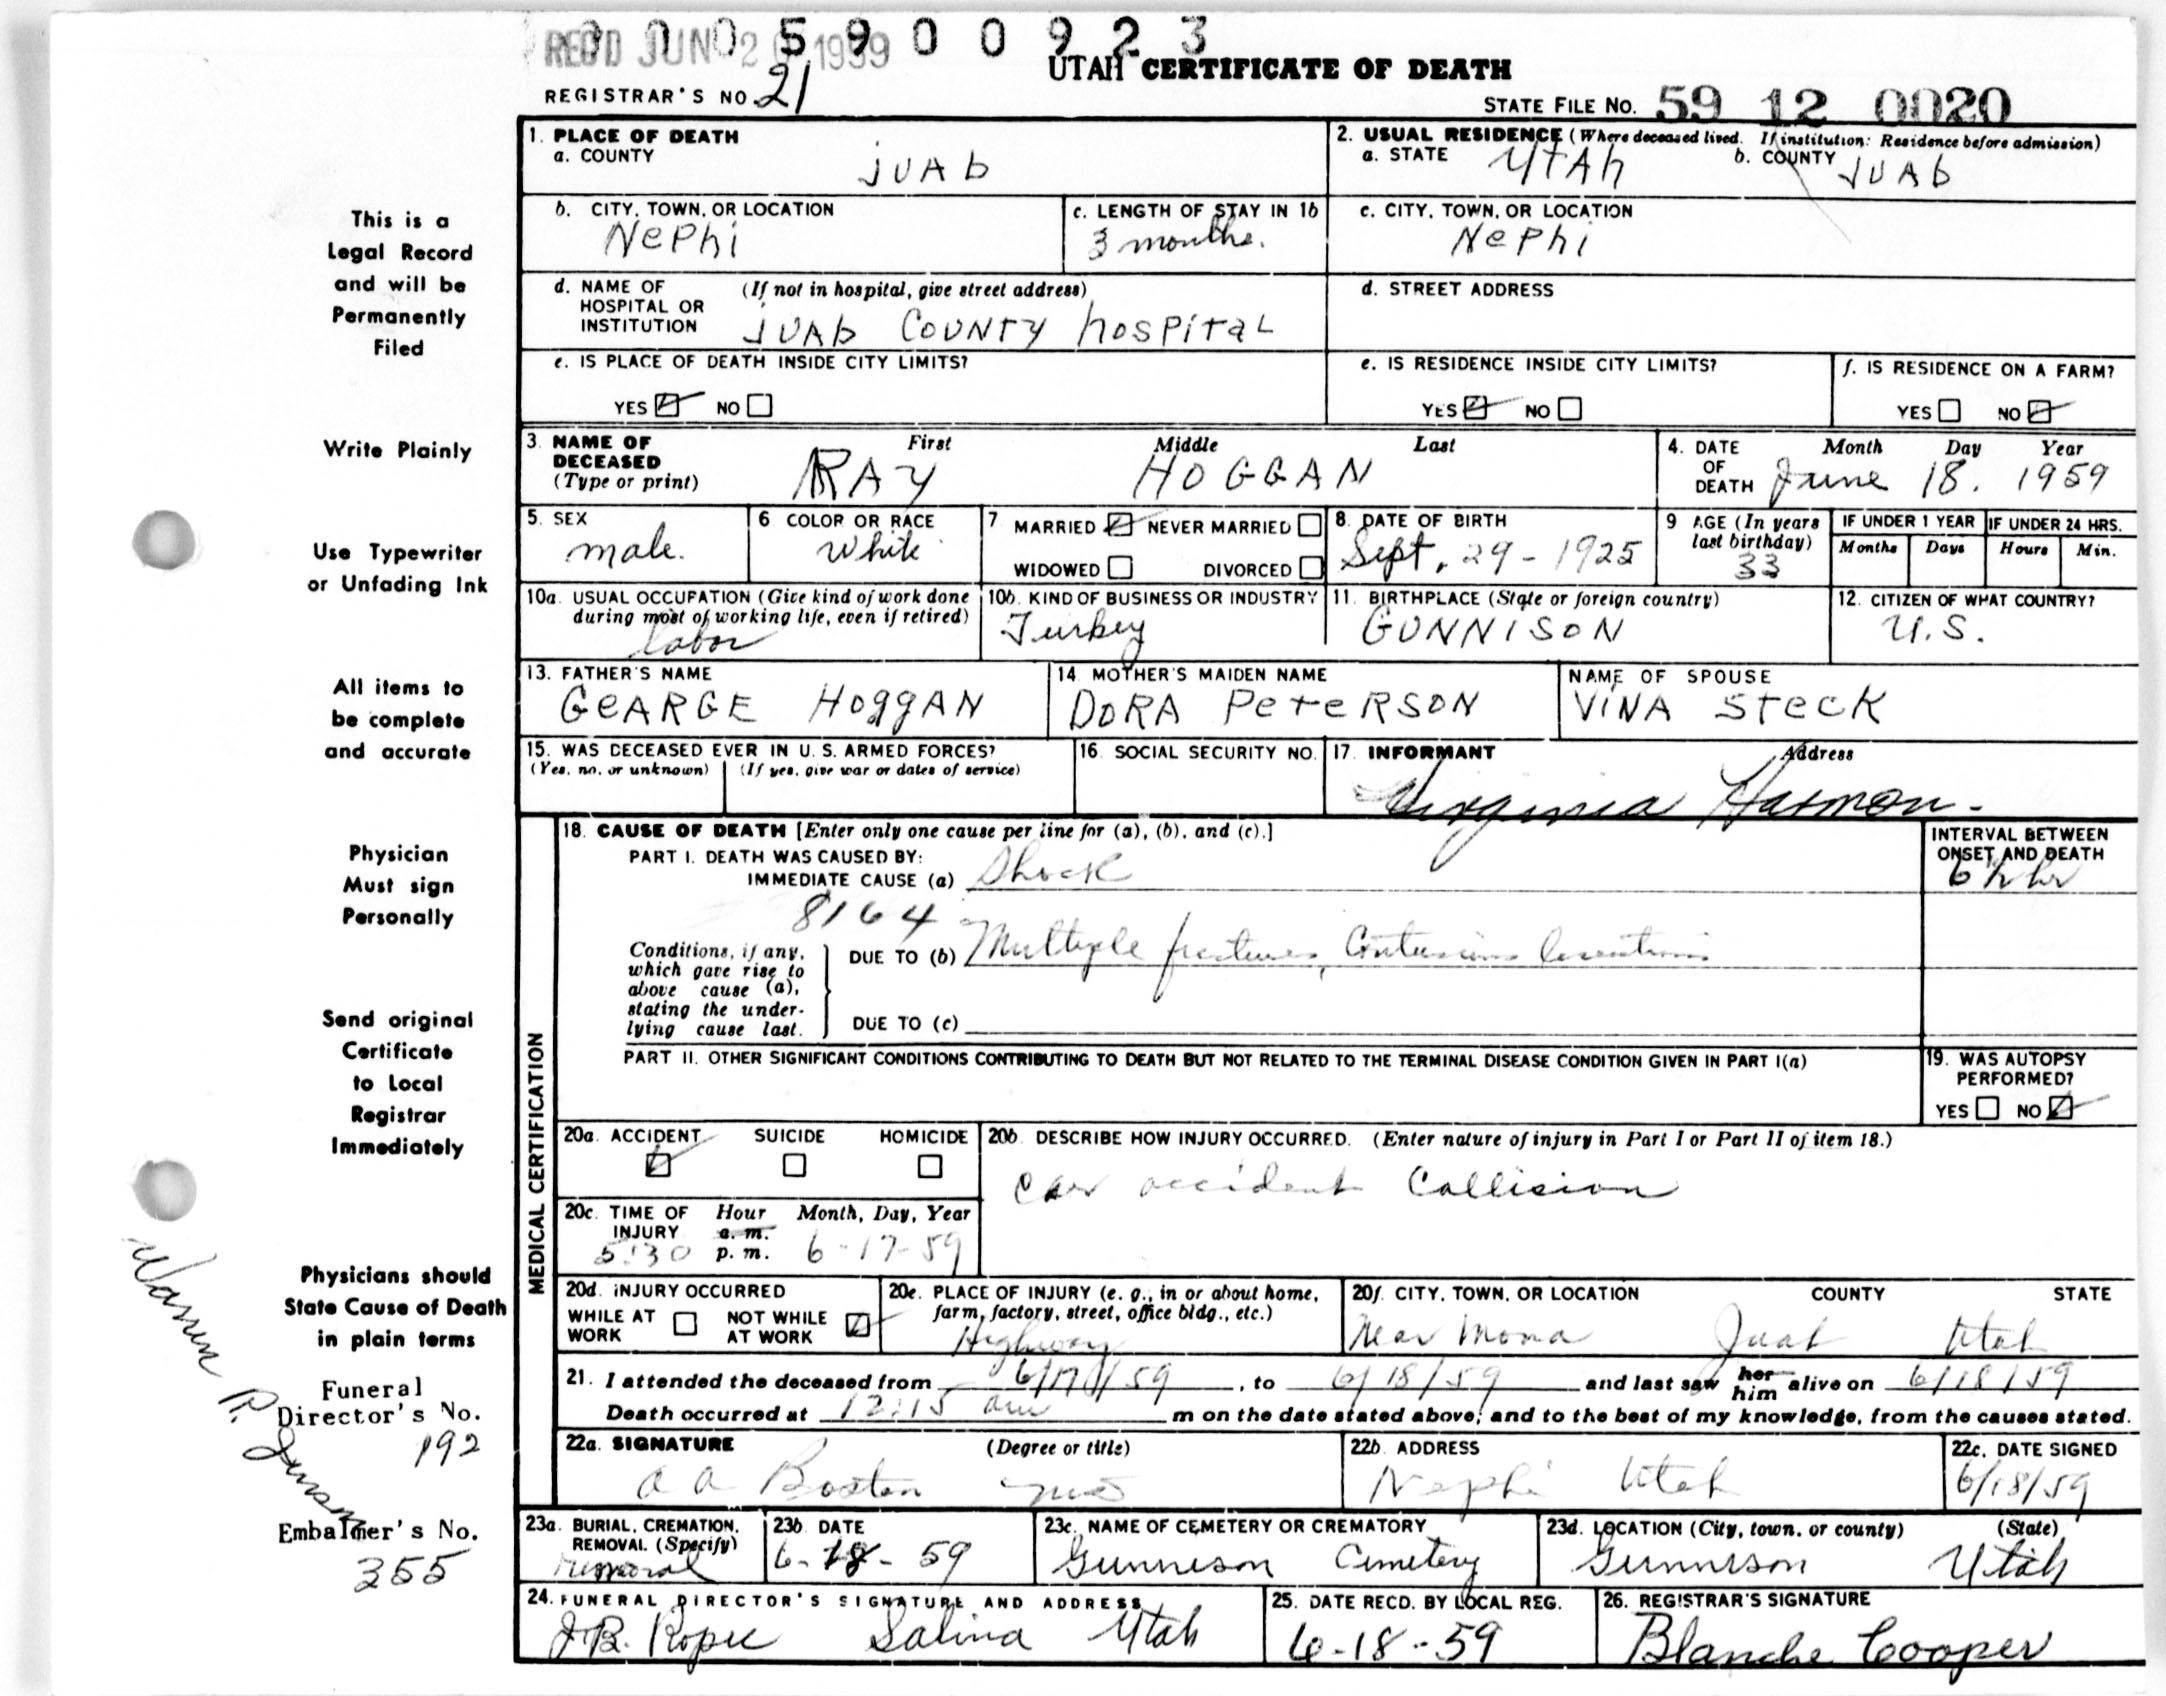 0 1 0 5 9 0 0 9 2 3
REC'D JUN 2 1959
UTAH CERTIFICATE OF DEATH
REGISTRAR'S NO 21
STATE FILE NO. 59 12 0020
1. PLACE OF DEATH
a. COUNTY
JUAb
2. USUAL RESIDENCE (Where deceased lived. If institution: Residence before admission)
a. STATE UTAh b. COUNTY JUAb
b. CITY, TOWN, OR LOCATION
NePhi
c. LENGTH OF STAY IN 1b
3 months.
c. CITY, TOWN, OR LOCATION
NePhi
d. NAME OF HOSPITAL OR INSTITUTION (If not in hospital, give street address)
JUAb COUNTY hosPiTaL
d. STREET ADDRESS
e. IS PLACE OF DEATH INSIDE CITY LIMITS?
YES NO
e. IS RESIDENCE INSIDE CITY LIMITS?
YES NO
f. IS RESIDENCE ON A FARM?
YES NO
3. NAME OF DECEASED (Type or print)
First Middle Last
RAY HOGGAN
4. DATE OF DEATH
Month Day Year
June 18. 1959
5. SEX
male.
6 COLOR OR RACE
White
7 MARRIED NEVER MARRIED
WIDOWED DIVORCED
8. DATE OF BIRTH
Sept. 29-1925
9 AGE (In years last birthday)
33
IF UNDER 1 YEAR
Months Days
IF UNDER 24 HRS.
Hours Min.
10a. USUAL OCCUPATION (Give kind of work done during most of working life, even if retired)
labor
10b. KIND OF BUSINESS OR INDUSTRY
Turkey
11. BIRTHPLACE (State or foreign country)
GUNNISON
12. CITIZEN OF WHAT COUNTRY?
U.S.
13. FATHER'S NAME
GeARGE HoggAN
14. MOTHER'S MAIDEN NAME
DORA PeTeRSON
NAME OF SPOUSE
ViNA STecK
15. WAS DECEASED EVER IN U. S. ARMED FORCES?
(Yes, no, or unknown) (If yes, give war or dates of service)
16. SOCIAL SECURITY NO.
17. INFORMANT Address
Virginia Harmon.
MEDICAL CERTIFICATION
18. CAUSE OF DEATH [Enter only one cause per line for (a), (b), and (c).]
PART I. DEATH WAS CAUSED BY:
IMMEDIATE CAUSE (a) Shock
INTERVAL BETWEEN ONSET AND DEATH
8164
Conditions, if any, which gave rise to above cause (a), stating the underlying cause last.
DUE TO (b) Multiple fractures, Contusions
DUE TO (c)
PART II. OTHER SIGNIFICANT CONDITIONS CONTRIBUTING TO DEATH BUT NOT RELATED TO THE TERMINAL DISEASE CONDITION GIVEN IN PART I(a)
19. WAS AUTOPSY PERFORMED?
YES NO
20a. ACCIDENT SUICIDE HOMICIDE
20b. DESCRIBE HOW INJURY OCCURRED. (Enter nature of injury in Part I or Part II of item 18.)
Car accident Collision
20c. TIME OF INJURY Hour Month, Day, Year
a. m.
5:30 p. m. 6-17-59
20d. INJURY OCCURRED
WHILE AT WORK NOT WHILE AT WORK
20e. PLACE OF INJURY (e. g., in or about home, farm, factory, street, office bldg., etc.)
Highway
20f. CITY, TOWN, OR LOCATION COUNTY STATE
Near Mona Juab Utah
21. I attended the deceased from 6/17/59, to 6/18/59 and last saw her him alive on 6/18/59
Death occurred at 12:15 am m on the date stated above, and to the best of my knowledge, from the causes stated.
22a. SIGNATURE (Degree or title)
a a Boston MD
22b. ADDRESS
Nephi Utah
22c. DATE SIGNED
6/18/59
23a. BURIAL, CREMATION, REMOVAL (Specify)
removal
23b. DATE
6-18-59
23c. NAME OF CEMETERY OR CREMATORY
Gunnison Cemetery
23d. LOCATION (City, town, or county) (State)
Gunnison Utah
24. FUNERAL DIRECTOR'S SIGNATURE AND ADDRESS
Salina Utah
25. DATE RECD. BY LOCAL REG.
6-18-59
26. REGISTRAR'S SIGNATURE
Blanche Cooper
This is a
Legal Record
and will be
Permanently
Filed
Write Plainly
Use Typewriter
or Unfading Ink
All items to
be complete
and accurate
Physician
Must sign
Personally
Send original
Certificate
to Local
Registrar
Immediately
Physicians should
State Cause of Death
in plain terms
Funeral
Director's No.
192
Embalmer's No.
355